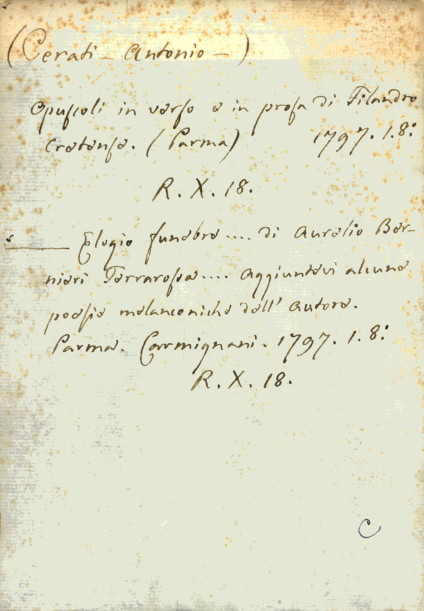 (Cerati - Antonio -)
Opuſcoli in verſo e in proſa di Filandro
Cretense. (Parma) 1797. 1. 8:
R. X. 18.
——— Elogio funebre .... di Aurelio Ber-
nieri Terrarossa .... Aggiuntevi alcune
poesie melanconiche dell' Autore.
Parma. Carmignani. 1797. 1. 8:
R. X. 18.
C